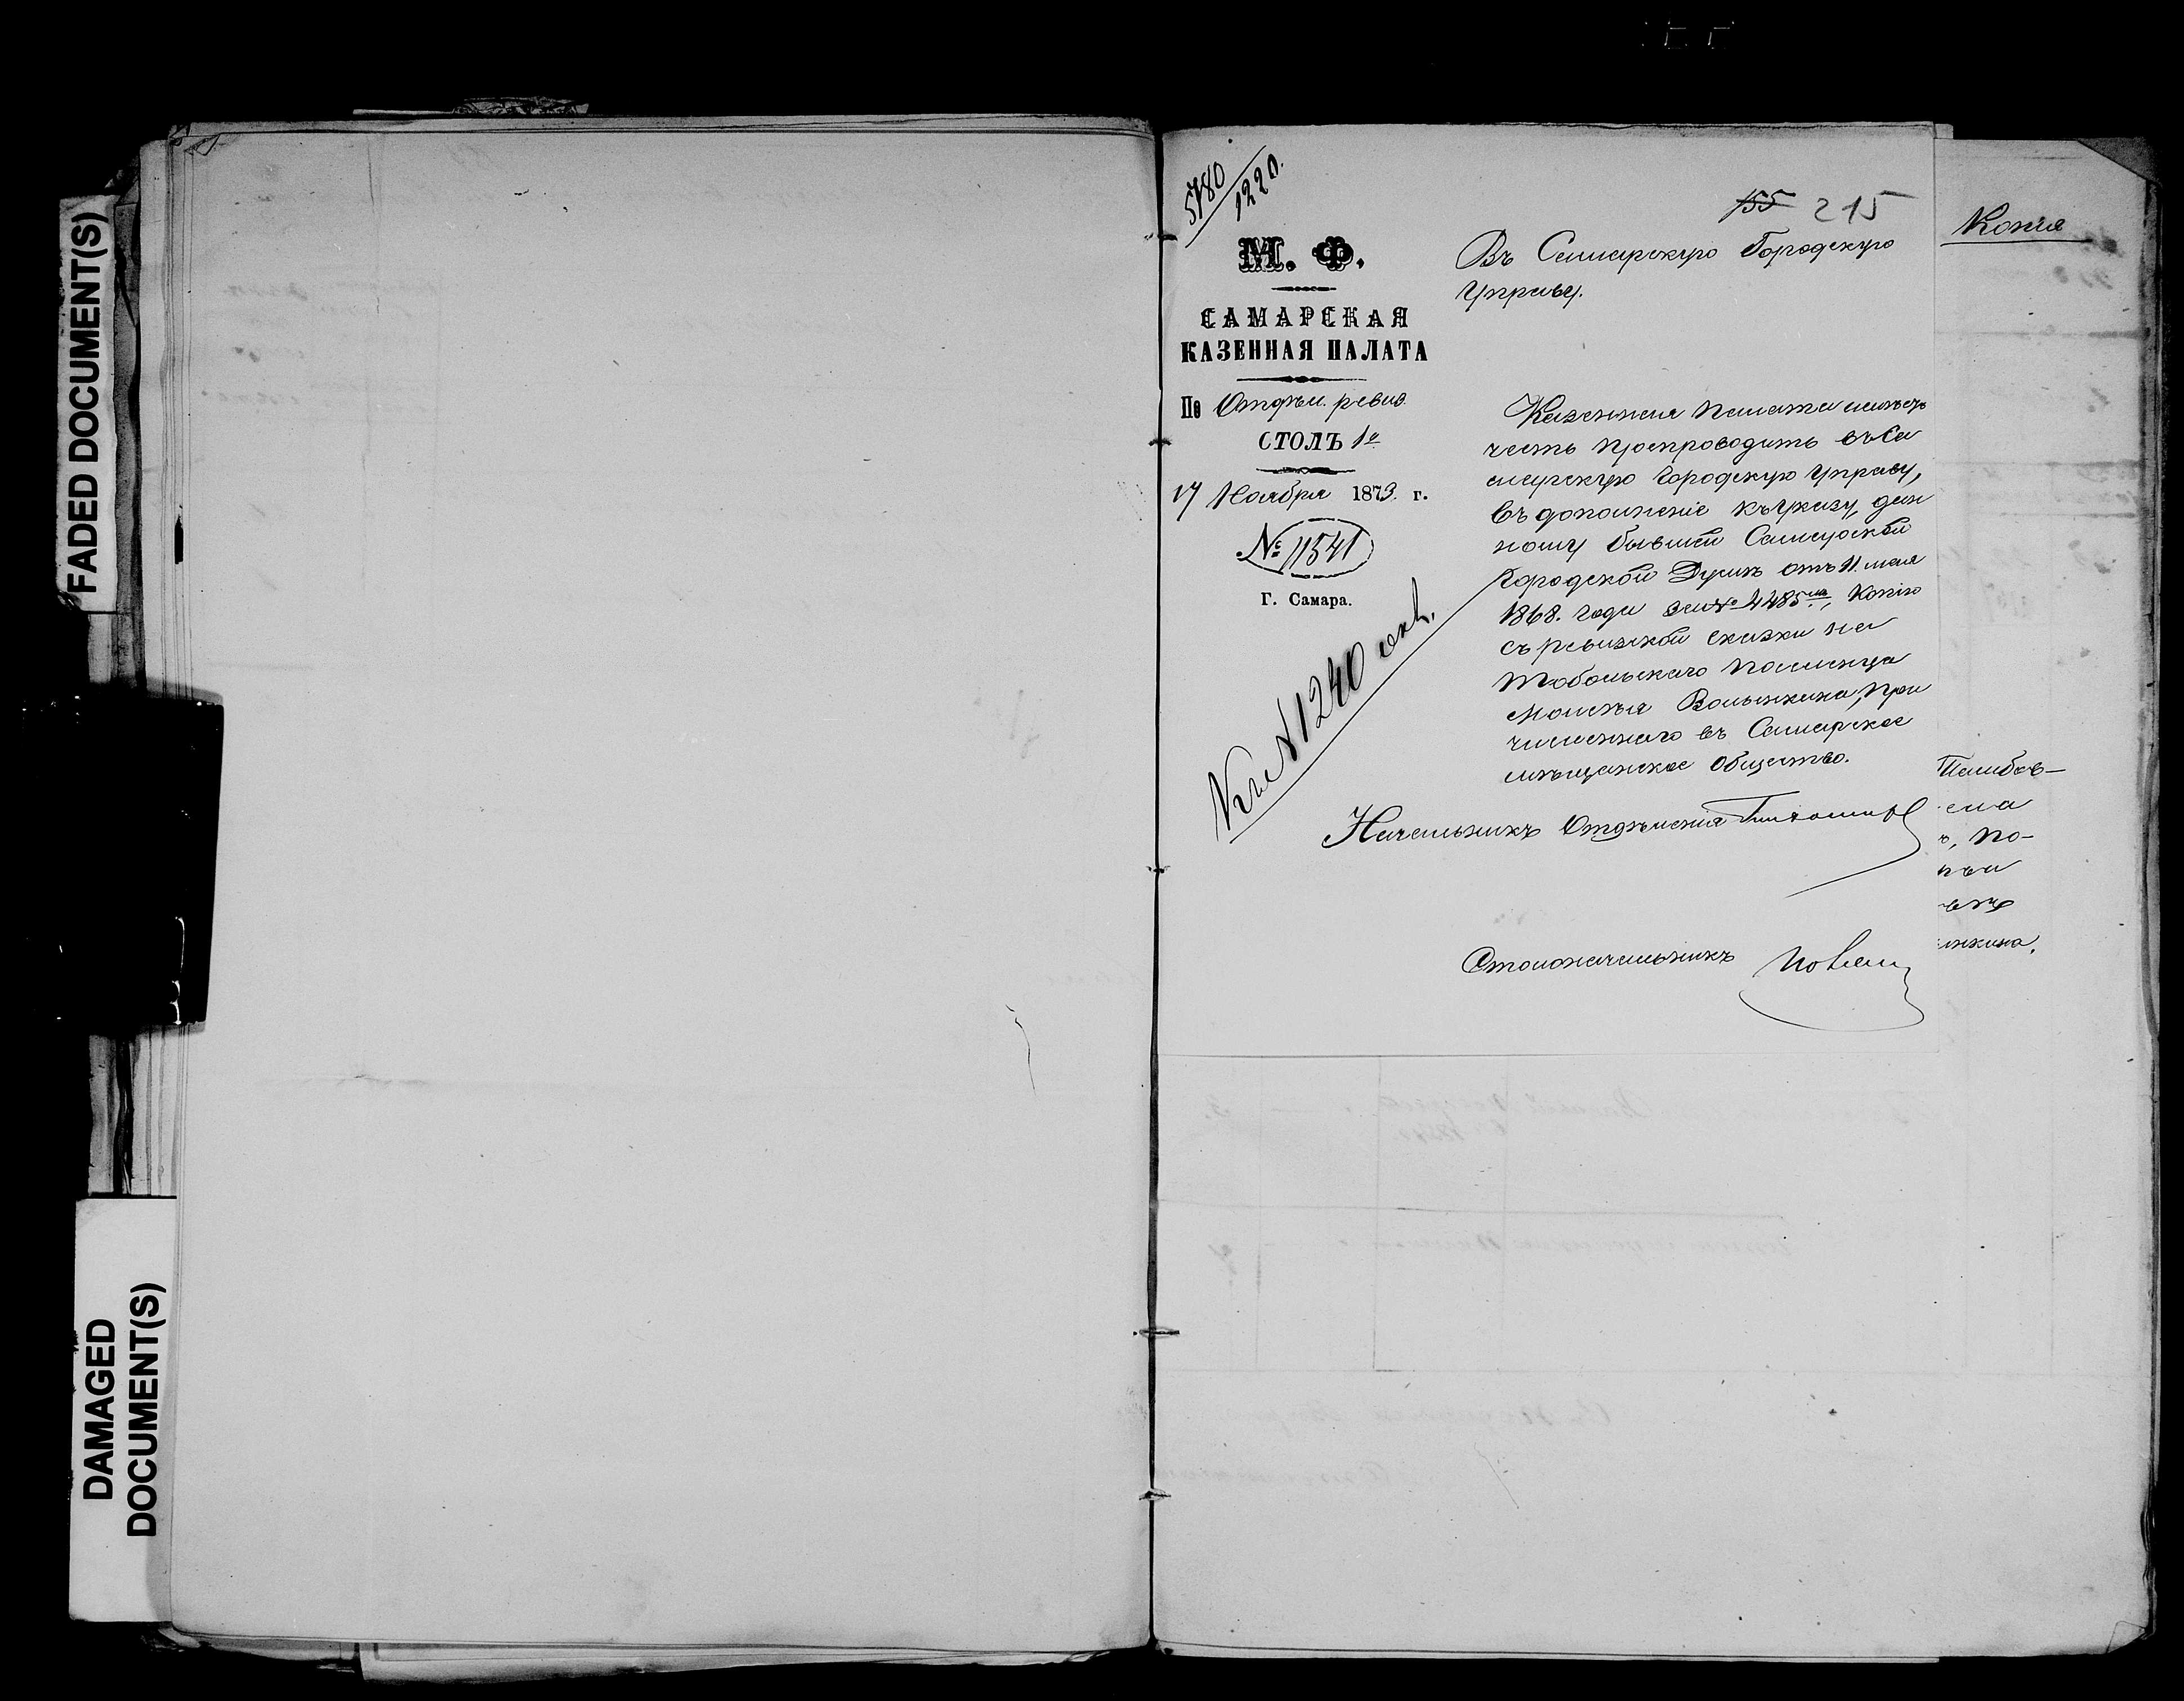 FADED DOCUMENT(S)
DAMAGED
DOCUMENT(S)
5780
1220.
155 215
М. Ф.
САМАРСКАЯ
КАЗЕННАЯ ПАЛАТА
По Отдѣл. ревиз.
СТОЛЪ 1й
17 Ноября 1873. г.
№ 11541
Г. Самара.
Къ № 1240
Въ Самарскую Городскую
Управу.
Казенная Палата имѣетъ
честь препроводить въ Са
марскую Городскую Управу,
въ дополненіе къ указу, дан
ному бывшей Самарской
Городской Думѣ отъ 11 мая
1868. года за № 4485мъ, копію
съ ревизской сказки на
Тобольскаго
Моисея Волынкина, при
численнаго въ Самарское
мѣщанское общество.
Начальникъ Отдѣленія
Столоначальникъ
Копія
Тамбов—
ема
ъ, по-
нкина.